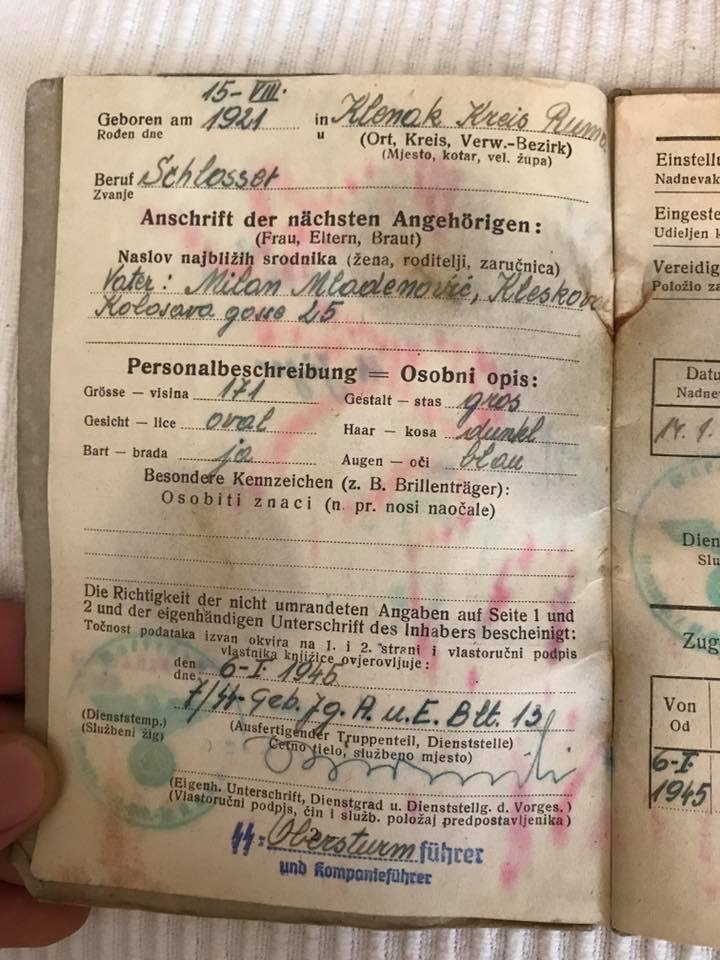 15-VIII.
Geboren am 1921 in Klenak Kreis Ruma
Rođen dne u (Ort, Kreis, Verw.-Bezirk)
(Mjesto, kotar, vel. župa)
Beruf Schlosser
Zvanje
Anschrift der nächsten Angehörigen:
(Frau, Eltern, Braut)
Naslov najbližih srodnika (žena, roditelji, zaručnica)
Vater: Milan Mladenović,
25
Personalbeschreibung = Osobni opis:
Grösse — visina 171 Gestalt — stas gros
Gesicht — lice oval Haar — kosa dunkl
Bart — brada ja Augen — oči blau
Besondere Kennzeichen (z. B. Brillenträger):
Osobiti znaci (n. pr. nosi naočale)
Die Richtigkeit der nicht umrandeten Angaben auf Seite 1 und
2 und der eigenhändigen Unterschrift des Inhabers bescheinigt:
Točnost podataka izvan okvira na 1. i 2. strani i vlastoručni podpis
vlastnika knjižice ovjerovljuje:
den
dne 6-I-1945
7/SS-Geb. Jg. A. u. E. Btl. 13
(Dienststemp.) (Ausfertigender Truppenteil, Dienststelle)
(Službeni žig) Četno tielo, službeno mjesto)
(Eigenh. Unterschrift, Dienstgrad u. Dienststellg. d. Vorges.)
(Vlastoručni podpis, čin i služb. položaj predpostavljenika)
SS-Obersturmführer
und Kompanieführer
Einstell
Nadnevak
Eingeste
Udieljen k
Vereidig
Položio za
Datu
Nadne
Dien
Slu
Zug
Von
Od
6-I
1945